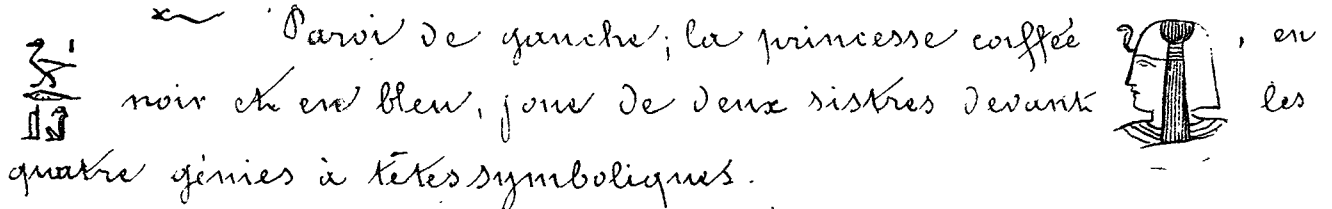 Paroi de gauche; la princesse coiffée, en
noir et en bleu, joue de deux sistres devant les
quatre génies à têtes symboliques.